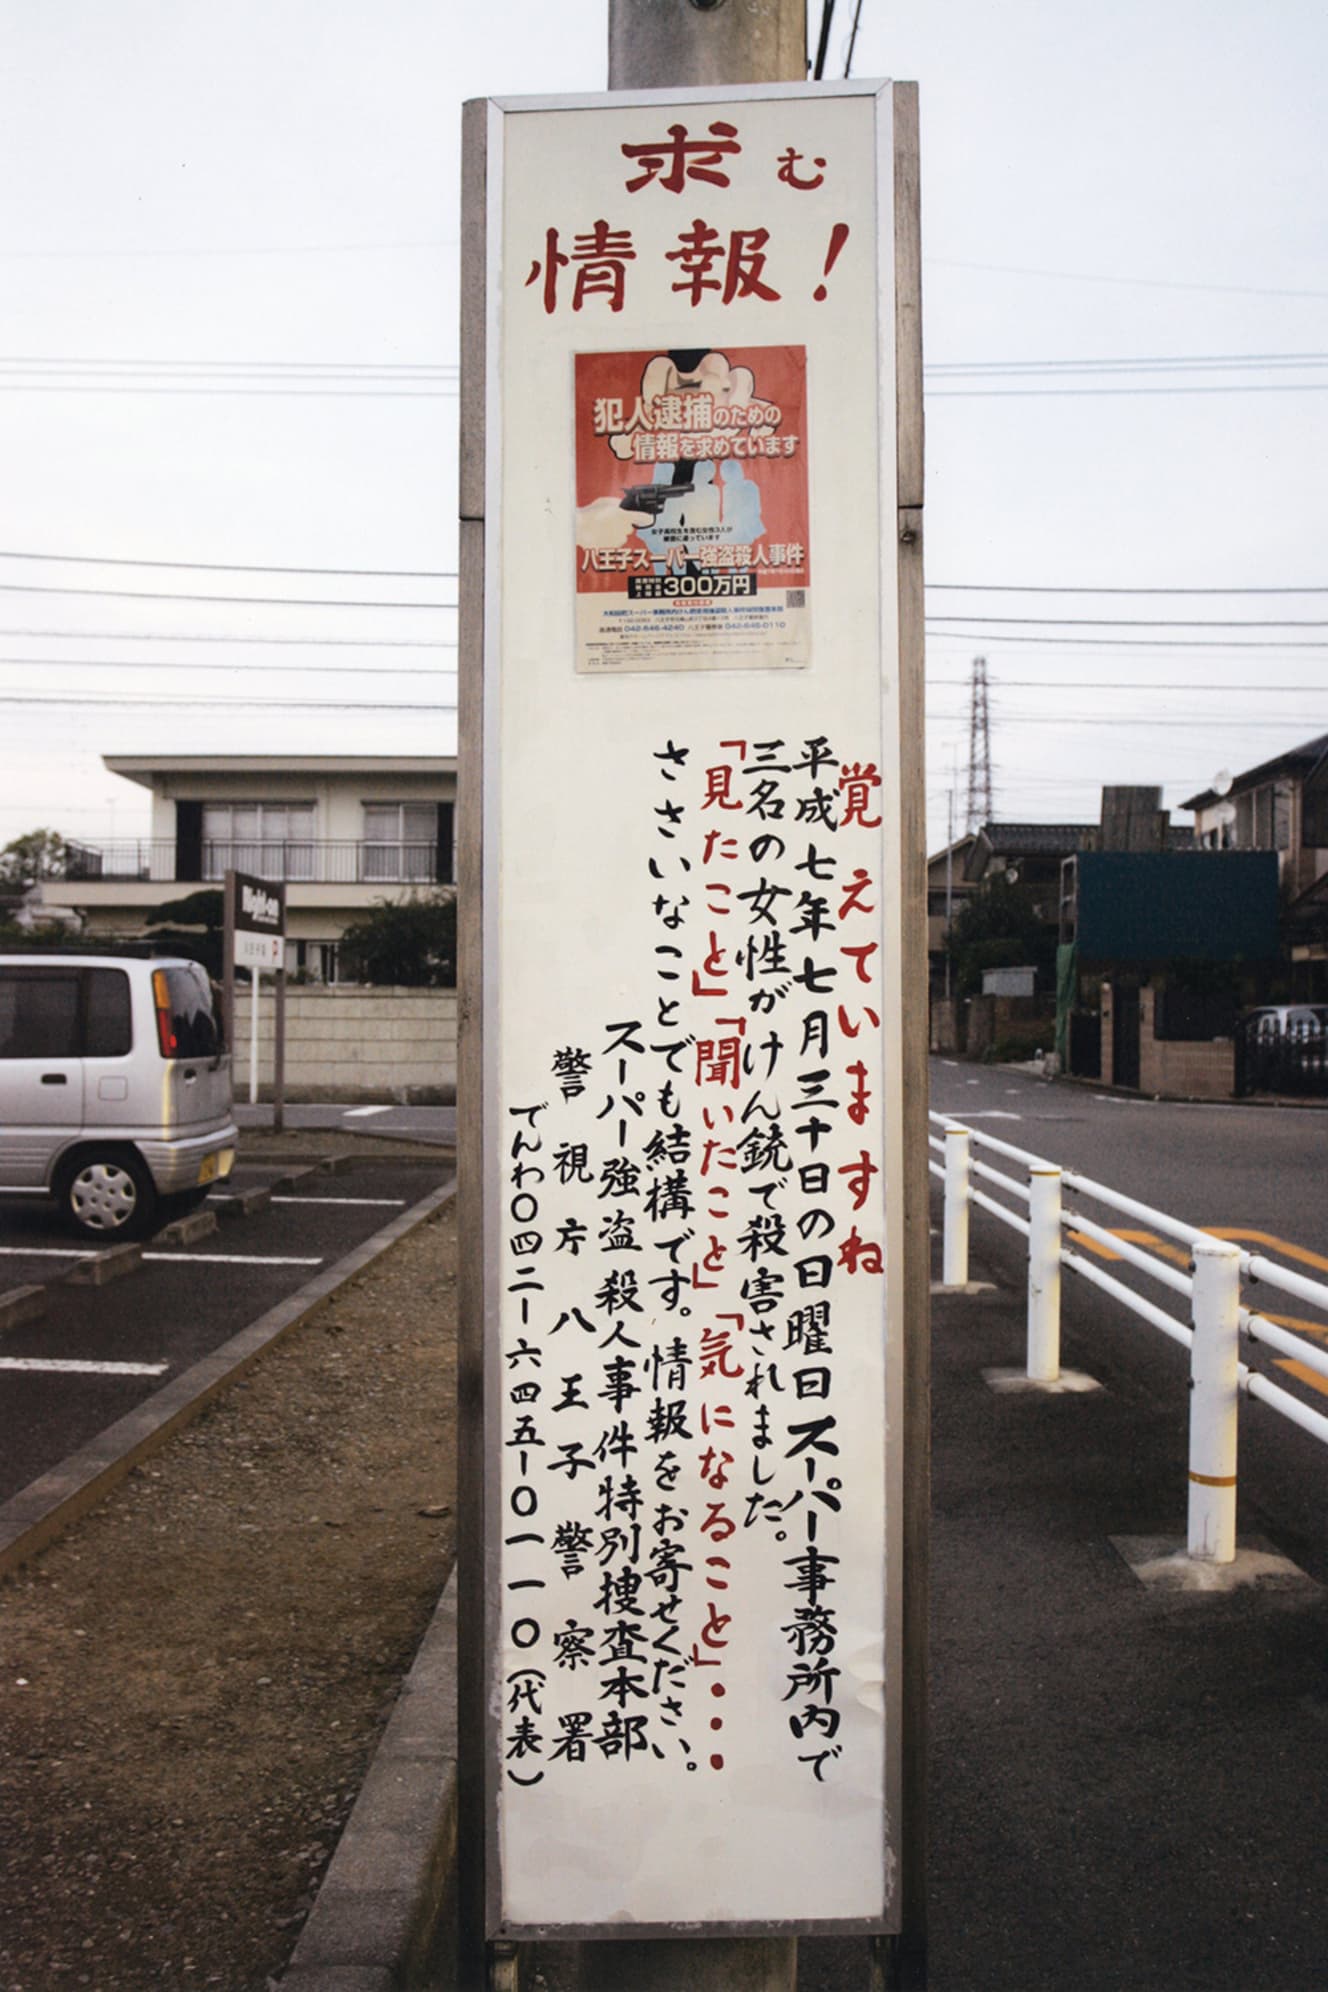 求む
情報!
犯人逮捕のための
情報を求めています
女子高校生を含む女性3人が
八王子スーパー強盗殺人事件
300万円
042-646-4240
042-645-0110
覚えていますね
平成七年七月三十日の日曜日スーパー事務所内で
三名の女性がけん銃で殺害されました。
「見たこと」「聞いたこと」「気になること」・・・
ささいなことでも結構です。情報をお寄せください。
スーパー強盗殺人事件特別捜査本部
警視庁八王子警察署
でんわ〇四二ー六四五ー〇一一〇(代表)
Right-on
P